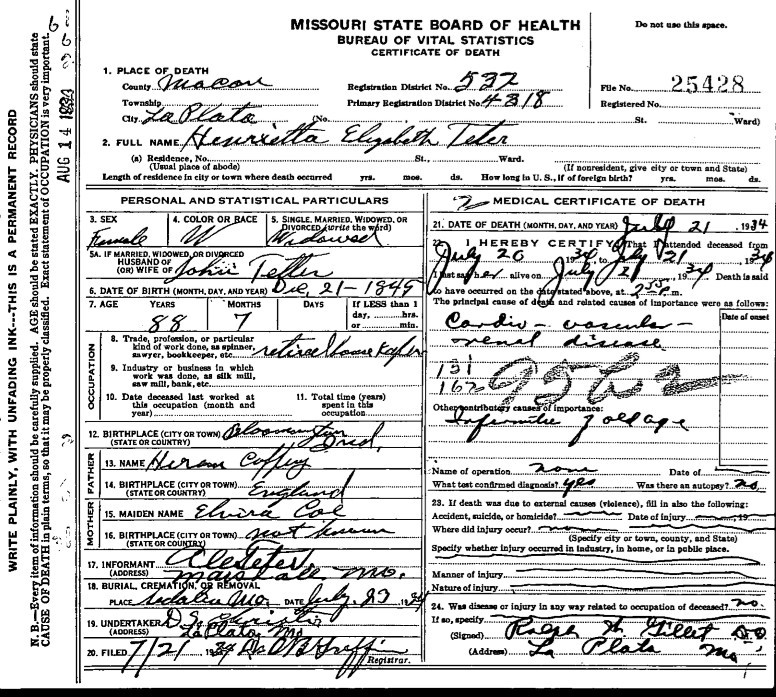 MISSOURI STATE BOARD OF HEALTH
BUREAU OF VITAL STATISTICS
CERTIFICATE OF DEATH
Do not use this space.
WRITE PLAINLY, WITH UNFADING INK---THIS IS A PERMANENT RECORD
N. B.—Every item of information should be carefully supplied. AGE should be stated EXACTLY. PHYSICIANS should state
CAUSE OF DEATH in plain terms, so that it may be properly classified. Exact statement of OCCUPATION is very important.
AUG 14
1. PLACE OF DEATH
County Macon Registration District No. 532 File No. 25428
Township Primary Registration District No. 4318 Registered No.
City La Plata (No. St. Ward)
2. FULL NAME Henrietta Elizabeth Teter
(a) Residence, No. St., Ward.
(Usual place of abode) (If nonresident, give city or town and State)
Length of residence in city or town where death occurred yrs. mos. ds. How long in U. S., if of foreign birth? yrs. mos. ds.
PERSONAL AND STATISTICAL PARTICULARS
3. SEX 4. COLOR OR RACE 5. SINGLE, MARRIED, WIDOWED, OR
DIVORCED (write the word)
Female W Widowed
5A. IF MARRIED, WIDOWED, OR DIVORCED
HUSBAND OF
(OR) WIFE OF John Teter
6. DATE OF BIRTH (MONTH, DAY, AND YEAR) Dec, 21-
7. AGE YEARS MONTHS DAYS If LESS than 1
day, hrs.
or min.
88 7
OCCUPATION
8. Trade, profession, or particular
kind of work done, as spinner,
sawyer, bookkeeper, etc. retired housekeeper
9. Industry or business in which
work was done, as silk mill,
saw mill, bank, etc.
10. Date deceased last worked at
this occupation (month and
year)
11. Total time (years)
spent in this
occupation
12. BIRTHPLACE (CITY OR TOWN) Bloomington
(STATE OR COUNTRY) Ind.
FATHER
13. NAME Hiram Coffey
14. BIRTHPLACE (CITY OR TOWN)
(STATE OR COUNTRY) England
MOTHER
15. MAIDEN NAME Elvira Cox
16. BIRTHPLACE (CITY OR TOWN) not known
(STATE OR COUNTRY)
17. INFORMANT Teter
(ADDRESS) Mo.
18. BURIAL, CREMATION, OR REMOVAL
PLACE Mo DATE July. 23, 1934
19. UNDERTAKER
(ADDRESS) La Plata Mo
20. FILED 7/21 1934 Griffin
Registrar.
MEDICAL CERTIFICATE OF DEATH
21. DATE OF DEATH (MONTH, DAY, AND YEAR) July 21, 1934
22. I HEREBY CERTIFY, That I attended deceased from
July 20, 1934, to July 21, 1934
I last saw her alive on July 21, 1934 Death is said
to have occurred on the date stated above, at m.
The principal cause of death and related causes of importance were as follows:
Date of onset
Cardio-vascular-
renal disease
131
162
95
Other contributory causes of importance:
Infirmities of old age
Name of operation none Date of
What test confirmed diagnosis? yes Was there an autopsy? no
23. If death was due to external causes (violence), fill in also the following:
Accident, suicide, or homicide? Date of injury , 19
Where did injury occur?
(Specify city or town, county, and State)
Specify whether injury occurred in industry, in home, or in public place.
Manner of injury
Nature of injury
24. Was disease or injury in any way related to occupation of deceased? no.
If so, specify
(Signed) Ralph H. Gillet D.O
(Address) La Plata Mo